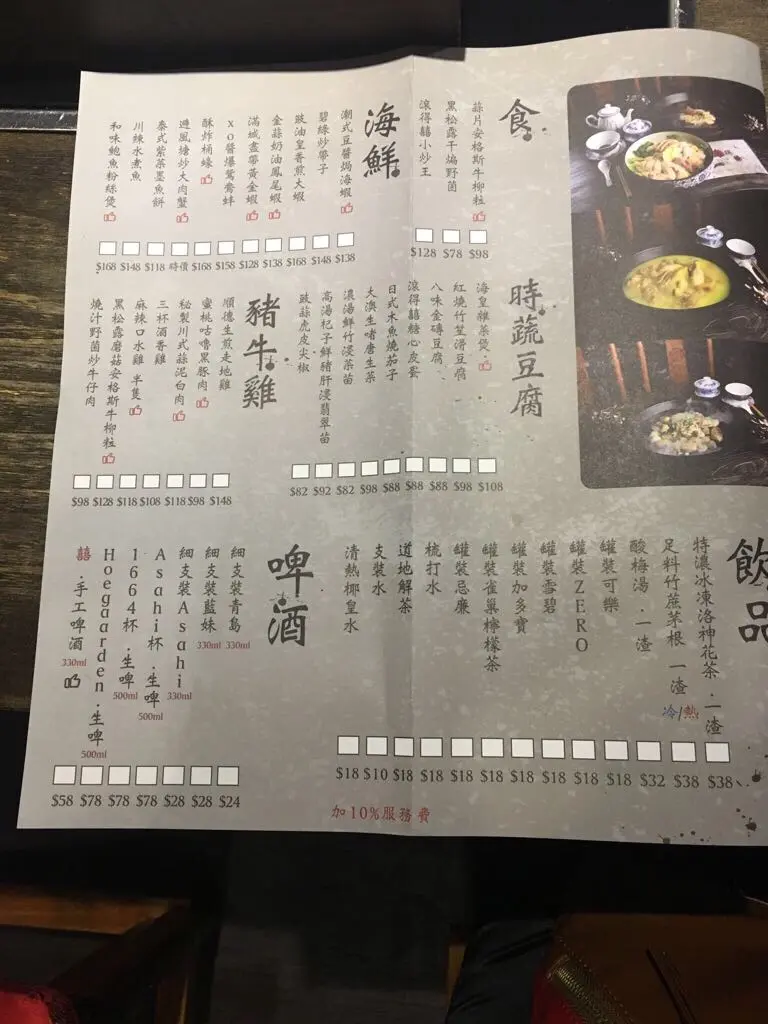 食
蒜片安格斯牛柳粒 $98
黑松露干煸野菌 $78
滾得囍小炒王 $128
海鮮
潮式豆醬焗海蝦 $138
碧綠炒帶子 $148
豉油皇香煎大蝦 $168
金蒜奶油鳳尾蝦 $138
滿城盡帶黃金蝦 $128
xo醬爆鴛鴦蚌 $158
酥炸桶蠔 $168
避風塘炒大肉蟹 時價
泰式紫菜墨魚餅 $118
川辣水煮魚 $148
和味鮑魚粉絲煲 $168
時蔬豆腐
海皇雜菜煲 $108
紅燒竹笙滑豆腐 $98
八味金磚豆腐 $88
滾得囍糖心皮蛋 $88
日式木魚燒茄子 $88
大澳生啫唐生菜 $98
濃湯鮮竹浸菜苗 $82
高湯杞子鮮豬肝浸翡翠苗 $92
豉蒜虎皮尖椒 $82
豬牛雞
順德生煎走地雞 $148
蜜桃咕嚕黑豚肉 $98
秘製川式蒜泥白肉 $118
三杯酒香雞 $108
麻辣口水雞 半隻 $118
黑松露蘑菇安格斯牛柳粒 $128
燒汁野菌炒牛仔肉 $98
飲品
特濃冰凍洛神花茶．一渣 $38
足料竹蔗茅根 一渣 冷/熱 $38
酸梅湯．一渣 $32
罐裝可樂 $18
罐裝ZERO $18
罐裝雪碧 $18
罐裝加多寶 $18
罐裝雀巢檸檬茶 $18
罐裝忌廉 $18
梳打水 $18
道地解茶 $18
支裝水 $10
清熱椰皇水 $18
啤酒
細支裝青島 330ml $24
細支裝藍妹 330ml $28
細支裝Asahi 330ml $28
Asahi杯．生啤 500ml $78
1664杯．生啤 500ml $78
Hoegaarden．生啤 500ml $78
囍．手工啤酒 330ml $58
加10%服務費